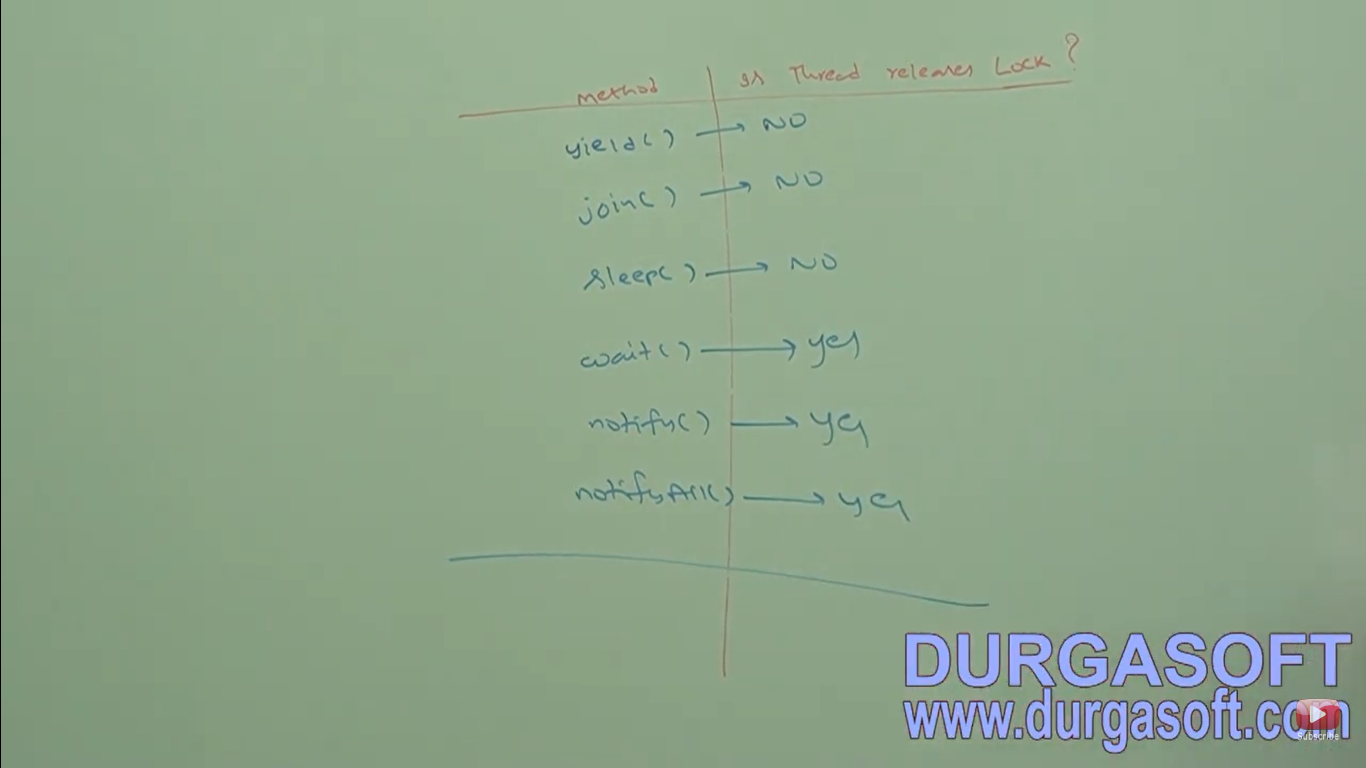 method | Is Thread releases Lock ?
yield( ) → NO
join( ) → NO
sleep( ) → NO
wait( ) → yes
notify( ) → yes
notifyAll( ) → yes
DURGASOFT
www.durgasoft.com
Subscribe